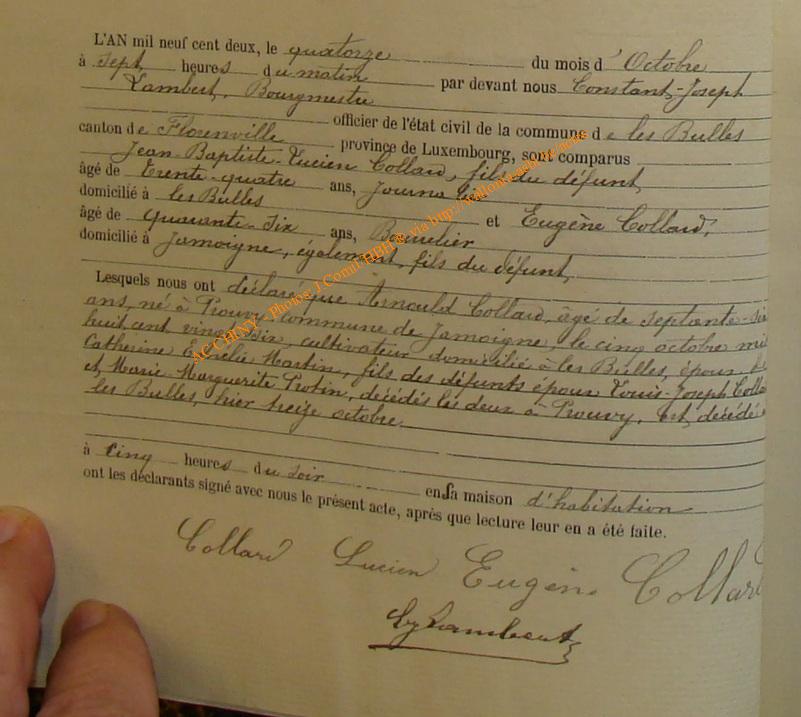 L'AN mil neuf cent deux, le quatorze du mois d'Octobre
à sept heures du matin par devant nous Constant-Joseph
Lambert, Bourgmestre
officier de l'état civil de la commune de les Bulles
canton de Florenville province de Luxembourg, sont comparus
Jean-Baptiste-Lucien Collard, fils du défunt,
âgé de trente-quatre ans, Journalier
domicilié à les Bulles et Eugène Collard,
âgé de quarante-six ans, Bourrelier
domicilié à Jamoigne, également, fils du défunt,
Lesquels nous ont déclaré que Arnould Collard, âgé de septante-six
ans, né à Prouvy commune de Jamoigne, le cinq octobre mil
huit cent vingt-six, cultivateur domicilié à les Bulles, époux
Catherine Martin, fils des défunts époux Louis-Joseph Colla
et Marie-Marguerite Probin, décédés les deux à Prouvy, est décédé
les Bulles, hier treize octobre.
à cinq heures du soir en sa maison d'habitation
ont les déclarants signé avec nous le présent acte, après que lecture leur en a été faite.
Collard Lucien Eugène Collard
Lambert
ACCHINY - Photos: J.Comil HBH @ via http://wallonica